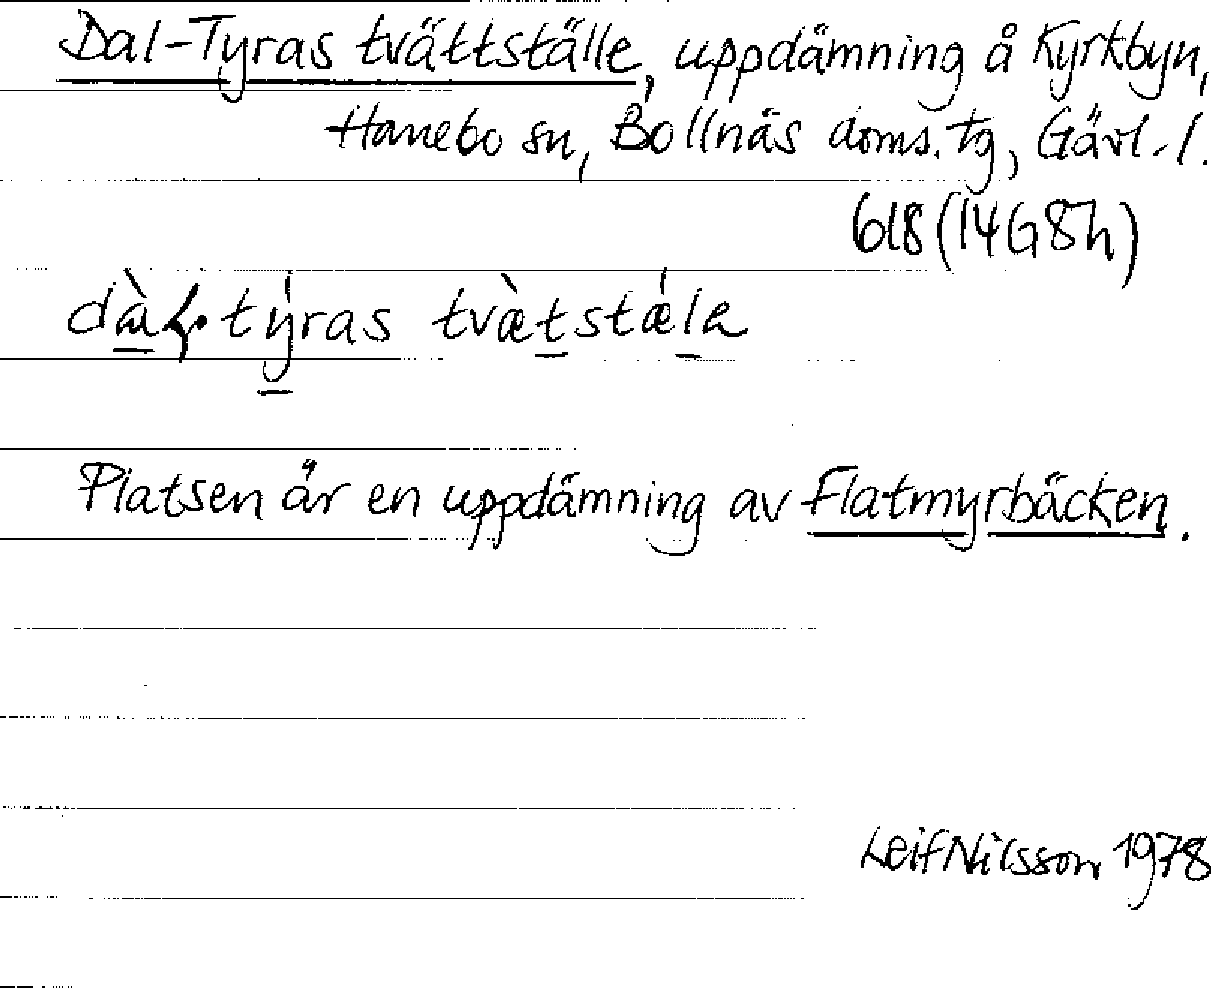 Dal-Tyras tvättställe, uppdämning å Kyrkbyn,
Hanebo sn, Bollnäs doms. tg, Gävl. l.
618 (14G8h)
dàɽ·týras tvæ̀tstǽla
Platsen är en uppdämning av Flatmyrbäcken.
Leif Nilsson 1978